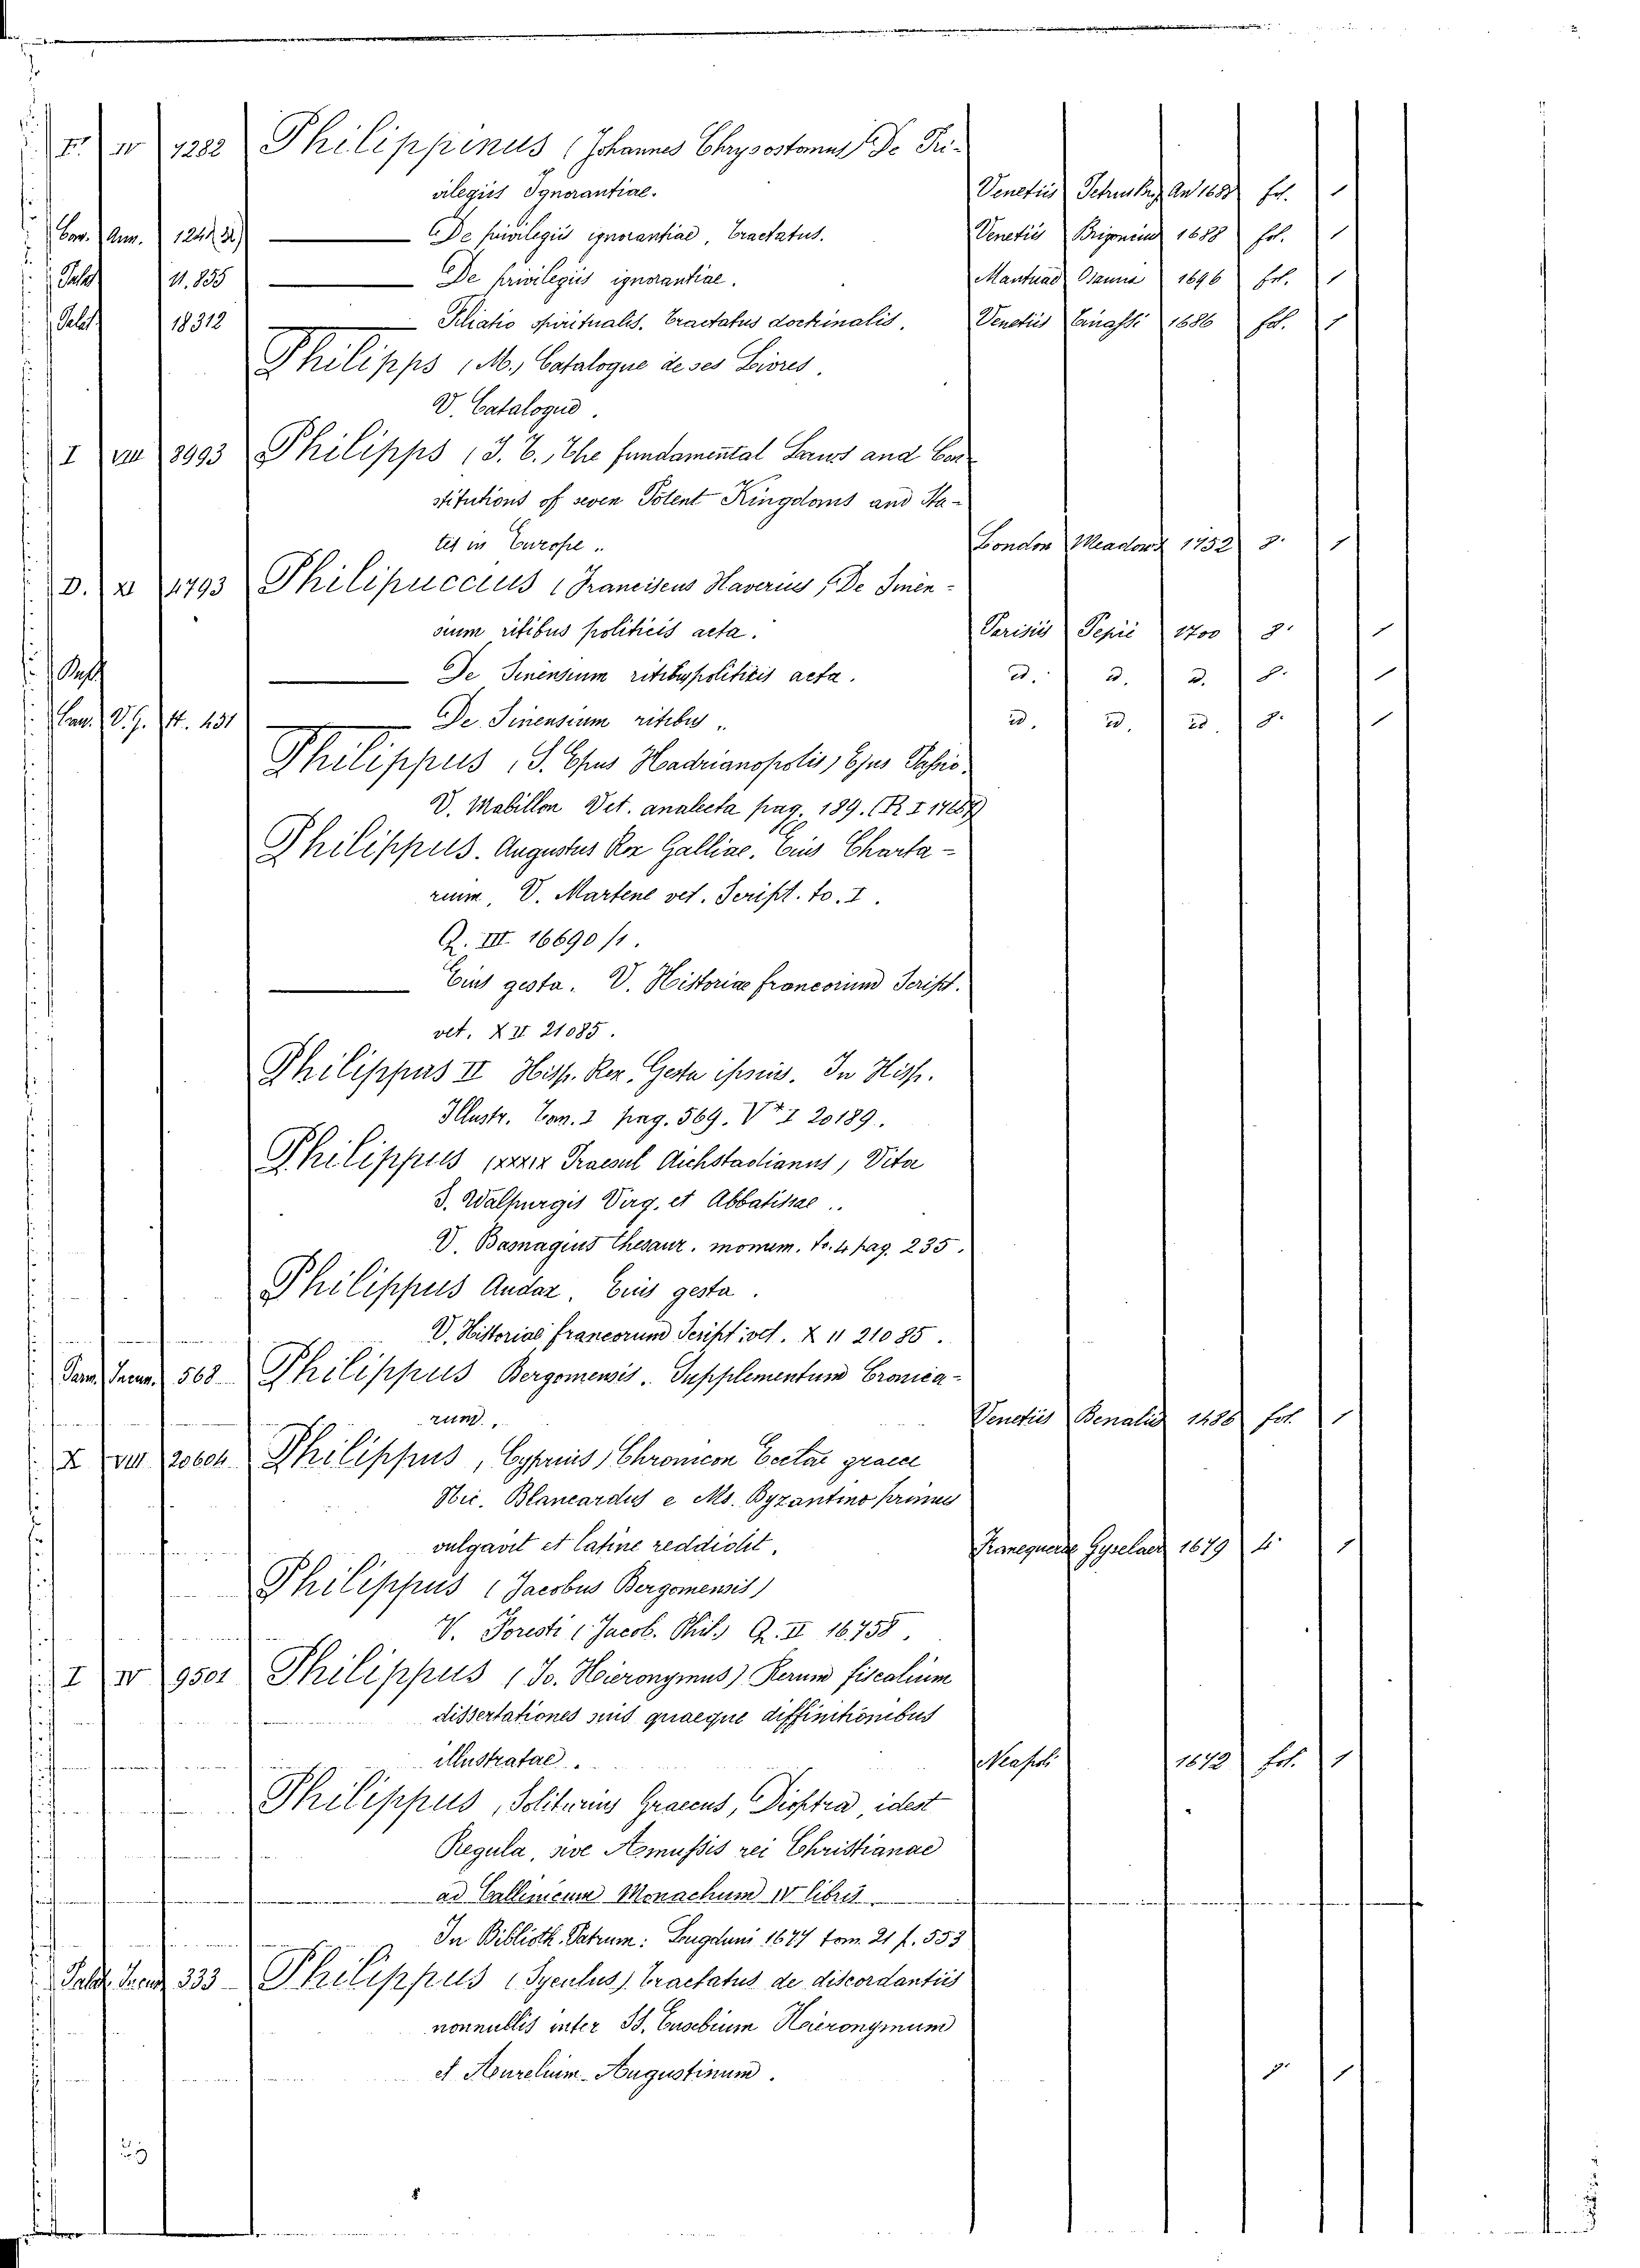 F. IV 1282 Philippinus (Johannes Chrysostomus) De Pri-
vilegiis Ignorantiae. Venetiis An 1688 fol. 1
Cor. Ann. 124 ——— De privilegiis ignorantiae, Tractatus. Venetiis Brigonein 1688 fol. 1
Palat 11.855 ——— De privilegiis ignorantiae. Mantuae Osanna 1696 fol. 1
Palat. 18312 ——— Filiatio spiritualis. Tractatus doctrinalis. Venetiis 1686 fol. 1
Philipps (M., Catalogue de ses Livres.
V. Catalogue.
I VIII 8993 Philipps (J. T., The fundamental Laws and Con-
stitutions of seven Potent Kingdoms and Sta-
tes in Europe. London Meadows 1752 8. 1
D. XI 4793 Philipuccius (Franciscus Xaverius, De Sinen-
sium ritibus politicis acta. Parisiis Pepié 1700 8. 1
——— De Sinensium ritibus politicis acta. id. id. id. 8. 1
V. G. 431 ——— De Sinensium ritibus. id. id. id. 8. 1
Philippus, S. Epus Hadrianopolis, Ejus Passio.
V. Mabillon Vet. analecta pag. 189. (R I
Philippus. Augustus Rex Galliae. Eius Charta-
rium, V. Martene vet. Script. to. I.
Q. III 16690/1.
——— Eius gesta. V. Historiae francorum Script.
vet. X II 21085.
Philippus II Hisp. Rex. Gesta ipsius. In Hisp.
Illustr. Tom. I pag. 569. V* I 20189.
Philippus (XXXIX Praesul Aichstadianus, Vita
S. Walpurgis Virg. et Abbatissae.
V. Basnagius Thesaur. monum. to. 4 pag. 235.
Philippus Audax. Eius gesta.
V. Historiae francorum Script. vet. X II 21085.
Pam. Incun. 568 Philippus Bergomensis. Supplementum Cronica-
rum. Venetiis Benalis 1486 fol. 1
X VIII 20604 Philippus, Cyprius, Chronicon Eccliae graecae
Nic. Blancardus e Ms. Byzantino primus
vulgavit et latine reddidit. Franequerae Gyselaer 1679 4. 1
Philippus (Jacobus Bergomensis)
V. Foresti (Jacob. Phil.) Q. II 16.758.
I IV 9501 Philippus (Jo. Hieronymus) Rerum fiscalium
dissertationes suis quaeque diffinitionibus
illustratae. Neapoli 1672 fol. 1
Philippus, Solitarius Graecus, Dioptra, idest
Regula, sive Amussis rei Christianae
ad Callinicum Monachum IV libris
In Biblioth. Patrum: Lugduni 1677 tom. 21 p. 553
Palat. Incun 333 Philippus (Syculus) Tractatus de discordantiis
nonnullis inter SS. Eusebium Hieronymum
et Aurelium Augustinum. 8. 1